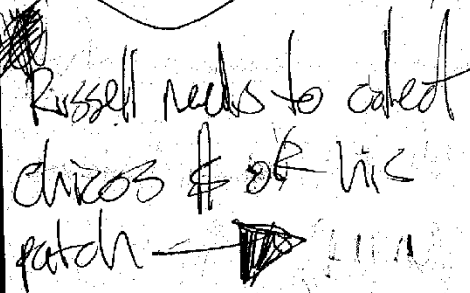 Russell needs to collect
chicos $ or his
patch